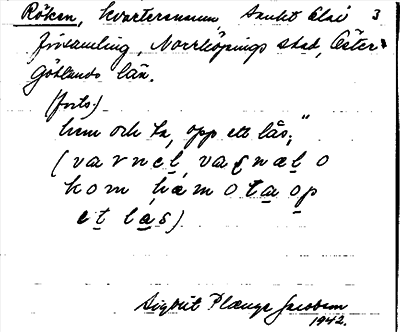 Röken, kvartersnamn, Sankt Olai 3
församling, Norrköpings stad, Öster-
Götlands län.
(forts.)
hem och ta, opp ett lås;"
(varnet, vagnæt o
kom hæm o ta op
et lås)
Sigbrit Plænge Jacobson
1942.